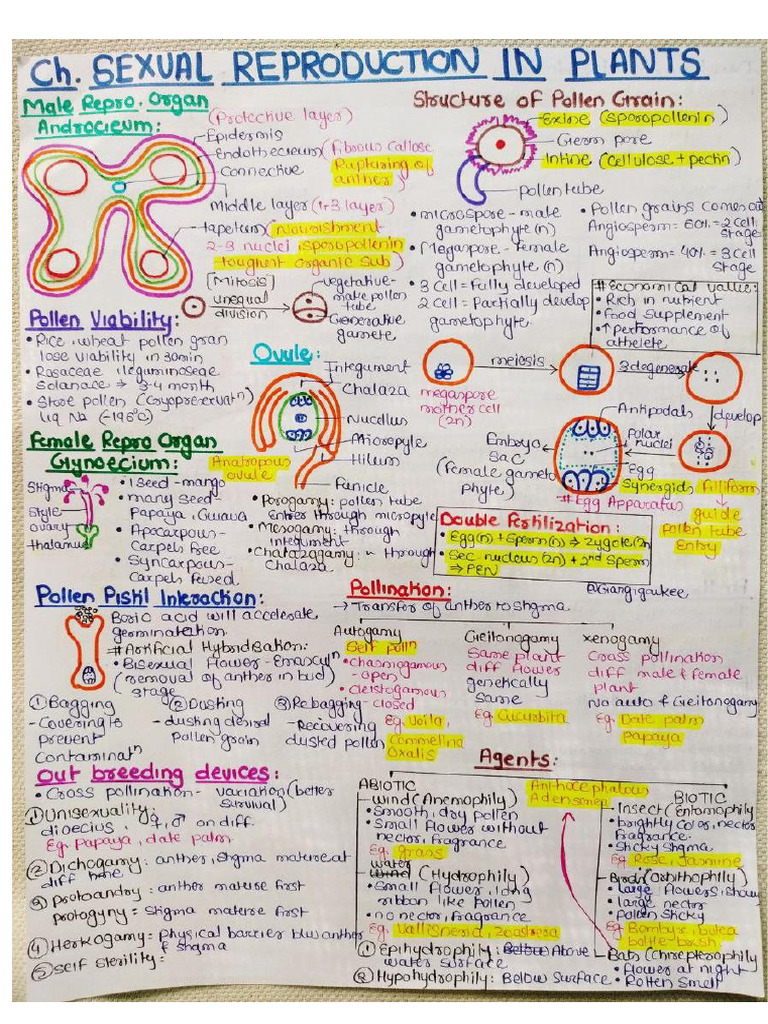 Ch. SEXUAL REPRODUCTION IN PLANTS
Male Repro. Organ
Androcieum:
(Protective layer)
Epidermis
Endothecieum (fibrous callose
Rapturing of
anther)
Connective
Middle layer (1-3 layer)
tapetum (Nourishment
2-3 nuclei, sporopollenin
toughest organic sub)
Structure of Pollen Grain:
Exine (sporopollenin)
Germ pore
Intine (Cellulose + pectin)
pollen tube
• microspore - male
gametophyte (n)
• Megaspore - female
gametophyte (n)
• 3 Cell = Fully developed
2 Cell = Partially develop
gametophyte
• Pollen grains comes out
Angiosperm = 60% = 2 Cell
Stage
Angiosperm = 40% = 3 Cell
Stage
# Economical value:
• Rich in nutrient
• Food Supplement
• ↑ performance of
athelete
[Mitosis]
unequal
division
vegetative-
make pollen
tube
Generative
gamete
Pollen Viability:
• Rice, wheat pollen gran
lose viability in 30min
• Rosaceae, leguminoseae
Solanace ⇒ 3-4 month
• Store pollen (Cryopreservatn)
liq N2 (-196°C)
Ovule:
Integument
Chalaza
Nucellus
Micropyle
Hilum
Funicle
Anatropous
ovule
megaspore
mother cell
(2n)
meiosis
3 degenerate
develop
Antipodals
Polar
nuclei
Embryo
Sac
(female gameto
phyte)
Egg
Synergids
filliform
↓
guide
Pollen tube
Entry
# Egg Apparatus
Female Repro Organ
Gynoecium:
Stigma
Style
ovary
thalamus
• 1 seed - mango
• many seed -
Papaya, Guava
• Apocarpous-
Carpels free
• Syncarpous-
Carpels fused
• Porogamy: pollen tube
Enter through micropyle
• Mesogamy: through
integument
• Chalazagamy: " through
Chalaza
Double Fertilization:
• Egg(n) + Sperm(n) ⇒ zygote(2n)
• Sec. nucleus (2n) + 2nd Sperm
⇒ PEN
@Giangigoukee
Pollen Pistil Interaction:
Boric acid will accelerate
germinatation
# Artificial Hybridisation:
• Bisexual flower - Emasculn
(removal of anther in bud
stage
① Bagging
- Covering to
prevent
Contaminatn
② Dusting
- dusting desired
Pollen grain
③ Rebagging
- Recovering
dusted pollen
Pollination:
→ Transfer of anther to Stigma
Autogamy
Self polln
• chasmogamous
- open
• cleistogamous
- closed
Eg. Voila,
Commelina
Oxalis
Geitonogamy
Same plant
diff flower
genetically
Same
Eg Cucurbita
xenogamy
Cross pollination
diff male & female
plant
No auto & Geitonogamy
Eg. Date palm
Papaya
Out breeding devices:
• Cross pollination - variation (better
Survival)
① Unisexuality:
dioecius : ♀, ♂ on diff.
Eg. Papaya, date palm
② Dichogamy: anther, Stigma mature at
diff time
③ Protoandry: anther mature first
protogyny: Stigma mature first
④ Herkogamy: physical barrier b/w anther
& stigma
⑤ Self Sterility:
Agents:
ABIOTIC
- Wind (Anemophily)
• Smooth, dry pollen
• Small flower without
nector, fragrance
Eg. grass
water
wind (Hydrophily)
• Small flower, long
ribbon like pollen
• no nector, fragrance
Eg. Vallisneria, Zoostrera
① Epihydrophily: Below Above
water surface
② Hypohydrophily: Below Surface
Anthocephalous
Adensonee
BIOTIC
- Insect (Entomophily
• brightly color, nector
fragrance
• Sticky Stigma
Eg Rose, Jasmine
- Birds (Ornithophily)
• large flowers, showy
• large nector
• pollen Sticky
Eg Bombyx, butea
bottle-brush
- Bats (Chiropterophily
• flower at night
• Rotten Smell